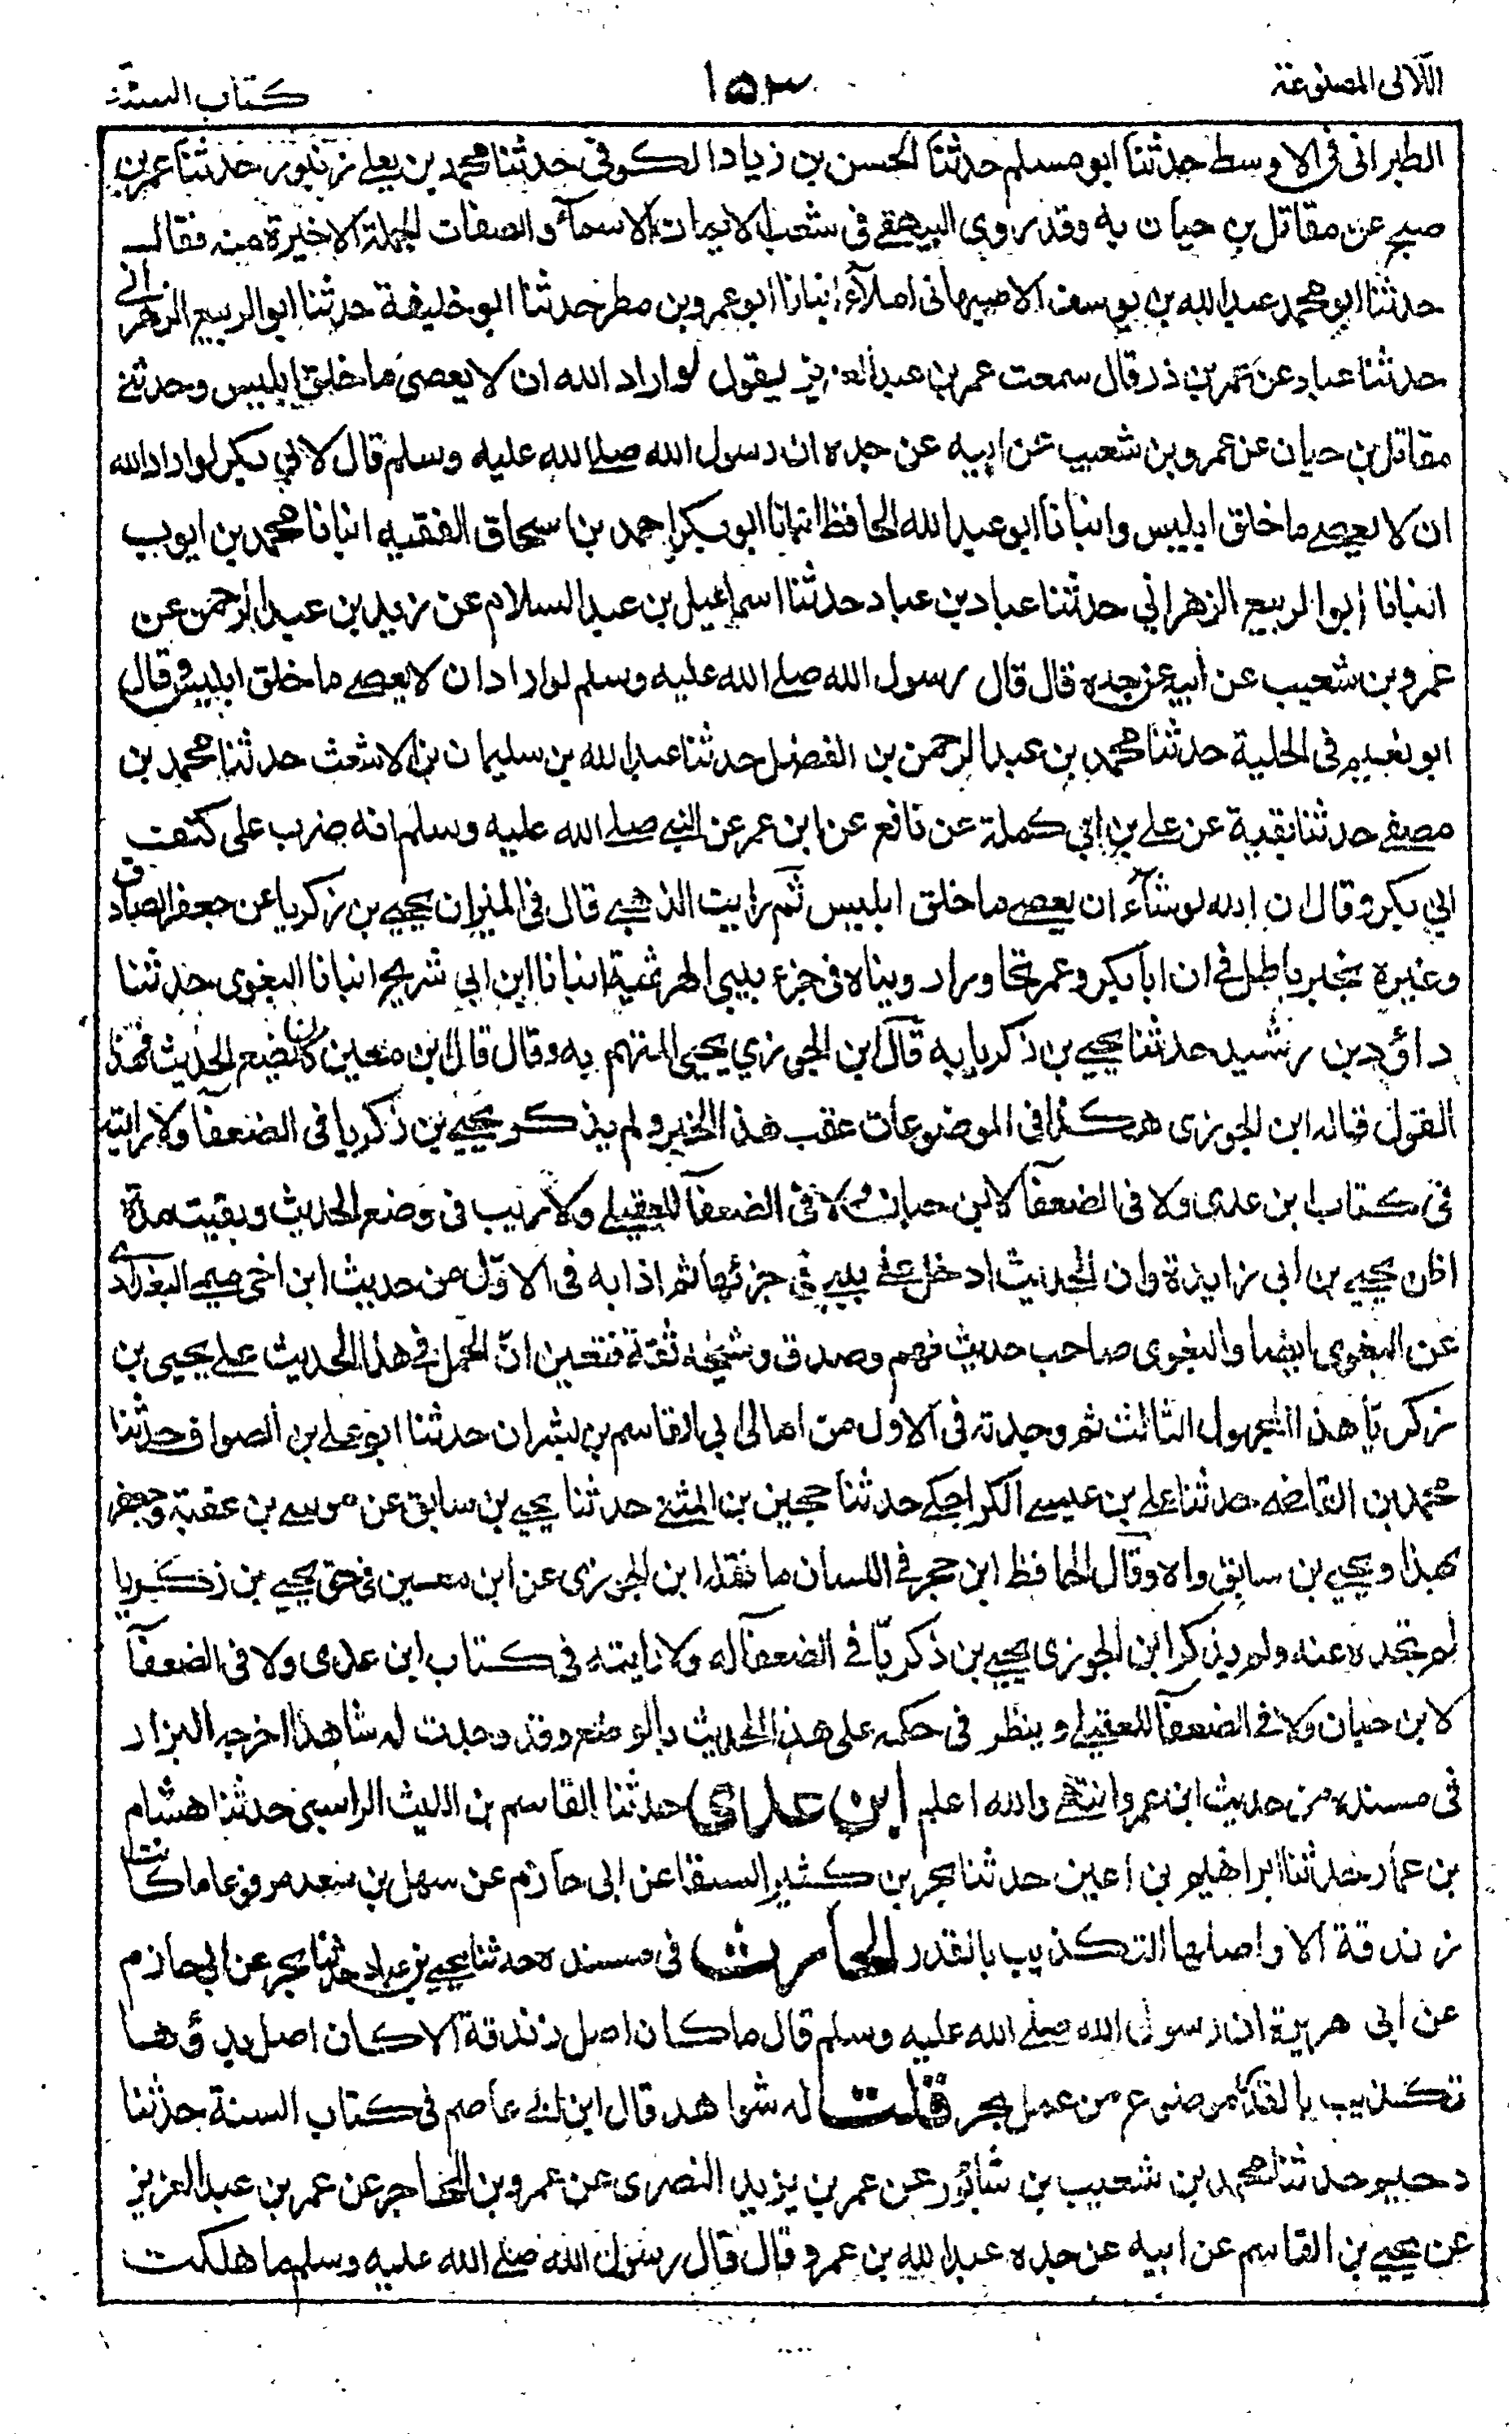 اللآلى المصنوعة
١٥٣
كتاب السنة
الطبرانى فى الاوسط حدثنا ابو مسلم حدثنا الحسن بن زياد الكوفى حدثنا محمد بن يعلے زنبور حدثنا عمر بن
صبح عن مقاتل بن حيان به وقد روى البيهقے فى شعب الايمان والاسمآء والصفات الجملة الاخيرة منه فقال
حدثنا ابو محمد عبد الله بن يوسف الاصبهانى املآء انبانا ابو عمرو بن مطر حدثنا ابو خليفة حدثنا ابو الربيع الزهرانى
حدثنا عباد عن عمر بن ذر قال سمعت عمر بن عبد العزيز يقول لو اراد الله ان لا يعصى ما خلق ابليس وحدثنے
مقاتل بن حيان عن عمرو بن شعيب عن ابيه عن جده ان رسول الله صلے الله عليه وسلم قال لابي بكر لو اراد الله
ان لا يعصے ما خلق ابليس وانبانا ابو عبد الله الحافظ انبانا ابو بكر احمد بن اسحاق الفقيه انبانا محمد بن ايوب
انبانا ابو الربيع الزهراني حدثنا عباد بن عباد حدثنا اسماعيل بن عبد السلام عن زيد بن عبد الرحمن عن
عمرو بن شعيب عن أبيه عن جده قال قال رسول الله صلے الله عليه وسلم لو اراد ان لا يعصے ما خلق ابليس وقال
ابو نعيم فى الحلية حدثنا محمد بن عبد الرحمن بن الفضل حدثنا عبد الله بن سليمان بن الاشعث حدثنا محمد بن
مصفے حدثنا بقية عن علے بن ابي كملة عن نافع عن ابن عمر عن النبے صلے الله عليه وسلم انه ضرب على كتف
ابي بكر وقال ان الله لو شآء ان يعصے ما خلق ابليس ثم رايت الذهبے قال فى الميزان يحيے بن زكريا عن جعفر الصادق
وغيره بخبر باطل فى ان ابا بكر وعمر تحاورا رويناه فى جزء بيبى الهرثمية انبانا ابن ابي شريح انبانا البغوى حدثنا
داؤد بن رشيد حدثنا يحيے بن زكريا به قال ابن الجوزي يحيى المتهم به وقال قال ابن معين كان يضع الحديث فهذا
القول قاله ابن الجوزى هكذا فى الموضوعات عقب هذا الخبر ولم يذكر يحيے بن زكريا فى الضعفآ ولا رايته
فى كتاب ابن عدى ولا فى الضعفآ لابن حبان ولا فى الضعفآ للعقيلے ولا ريب فى وضع الحديث وبقيت مدة
اظن يحيے بن ابى زايدة وان الحديث ادخل علے بيبى فى جزئها ثم اذا به فى الاوّل من حديث ابن اخى ميمے البغدادے
عن البغوى ايضا والبغوى صاحب حديث فهم وصدق وشيخه ثقة فتعين انّ الحمل فى هذا الحديث علے يحيى بن
زكريّا هذا المجهول التالف ثم وجدته فى الاول من امالى ابي القاسم بن بشران حدثنا ابو علے بن الصواف حدثنا
محمد بن القاضے حدثنا علے بن عيسے الكراجكے حدثنا حجين بن المثنے حدثنا يحيے بن سابق عن موسے بن عقبة وجعفر
بهذا ويحيے بن سابق واه وقال الحافظ ابن حجر فى اللسان ما نقله ابن الجوزى عن ابن معين فى حق يحيے بن زكريا
لم نجده عنه ولم يذكر ابن الجوزى يحيے بن زكريّا فى الضعفآ له ولا رايته فى كتاب ابن عدى ولا فى الضعفآ
لابن حبان ولا فى الضعفآ للعقيلے وينظر فى حكمه على هذا الحديث بالوضع وقد وجدت له شاهدا اخرجه البزار
فى مسنده من حديث ابن عمر وانتهے والله اعلم (ابن عدى) حدثنا القاسم بن الليث الراسبى حدثنا هشام
بن عمار حدثنا ابراهيم بن اعين حدثنا بحر بن كثير السقا عن ابى حازم عن سهل بن سعد مرفوعا ما كانت
زندقة الا واصلها التكذيب بالقدر الحارث فى مسنده حدثنا يحيے بن عباد حدثنا بحر عن ابى حازم
عن ابى هريرة ان رسول الله صلے الله عليه وسلم قال ما كان اصل زندقة الا كان اصل بدؤها
تكذيب بالقدر موضوع من عمل بحر قلت له شواهد قال ابن ابى عاصم فى كتاب السنة حدثنا
دحيم حدثنا محمد بن شعيب بن شابور عن عمر بن يزيد النصرى عن عمرو بن المهاجر عن عمر بن عبد العزيز
عن يحيے بن القاسم عن ابيه عن جده عبد الله بن عمرو قال قال رسول الله صلے الله عليه وسلم ما هلكت